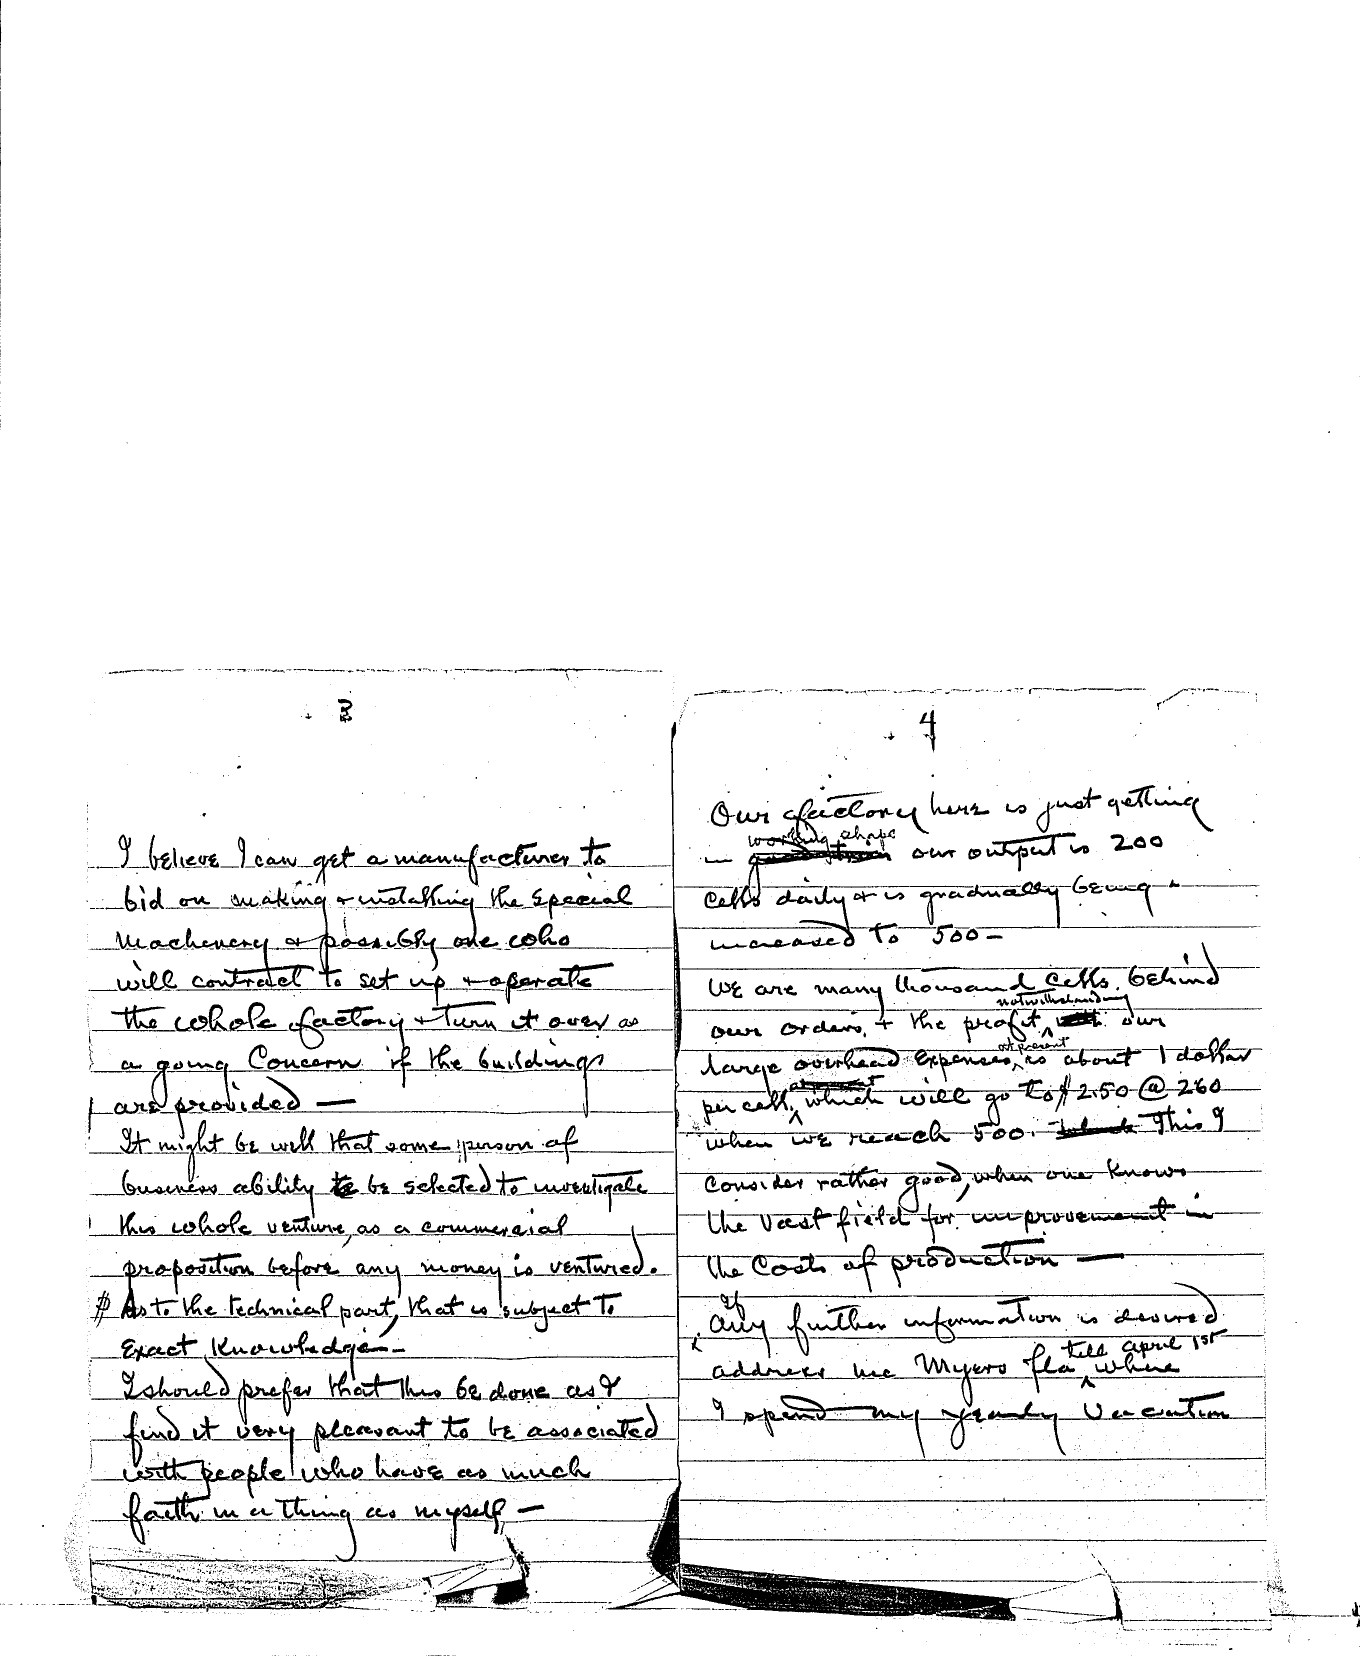 3
I believe I can get a manufacturer to
bid on making & installing the special
Machinery & possibly one who
will contract to set up & operate
the whole factory & turn it over as
a going Concern if the buildings
are provided —
It might be well that some person of
business ability to be selected to investigate
this whole venture, as a commercial
proposition before any money is ventured.
As to the technical part, that is subject to
Exact Knowledge—
I should prefer that this be done as I
find it very pleasant to be associated
with people who have as much
faith in a thing as myself —
4
Our factory here is just getting
working shape
in our output is 200
Cells daily & is gradually being
increased to 500 —
We are many thousand Cells behind
notwithstanding
our orders, & the profit our
at present
large overhead Expenses, is about 1 dollar
per cell, which will go to $2.50 @ 260
when we reach 500. This I
Consider rather good, when one Knows
the vast field for improvement in
the Costs of production —
If
any further information is desired
till april 1st
address me Myers Fla where
I spend my yearly Vacation